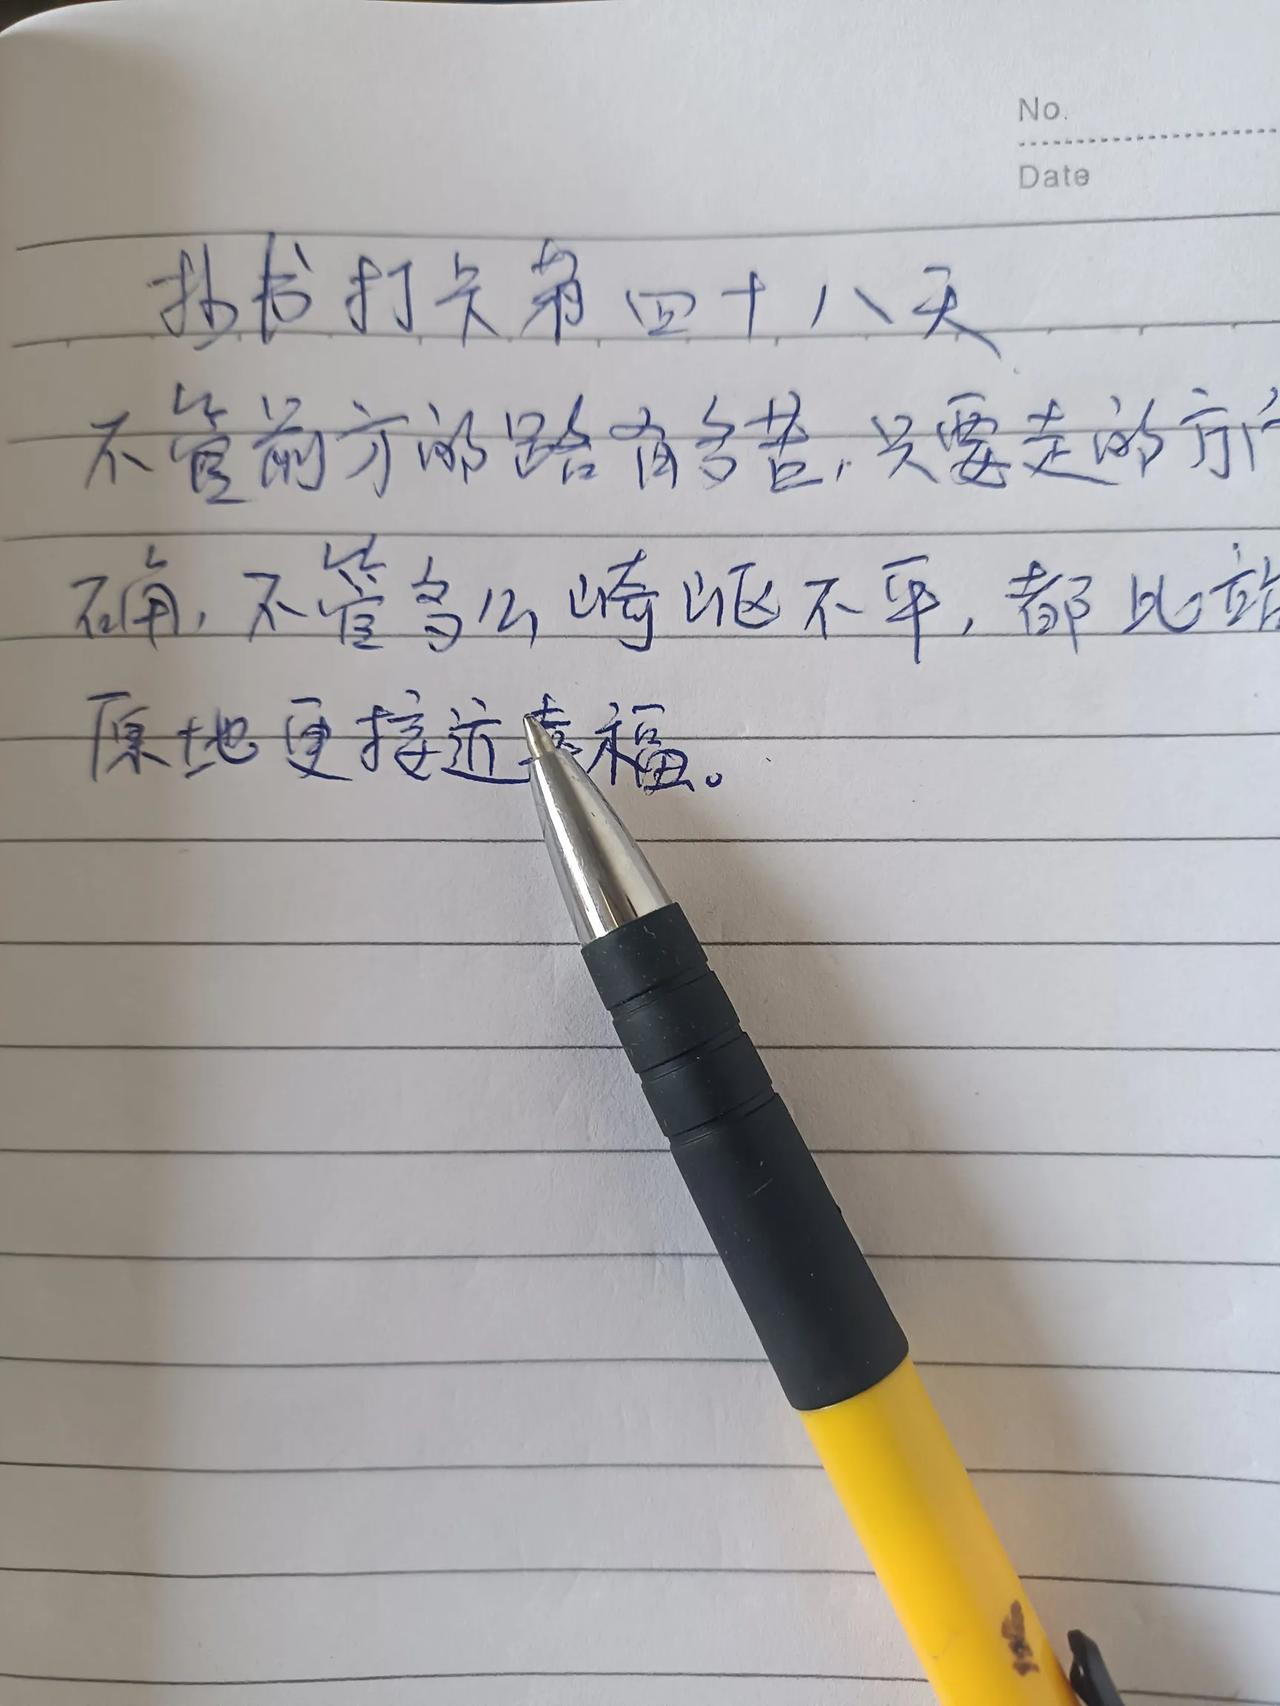 No.
Date
抄书打卡第四十八天
不管前方的路有多苦,只要走的方
确,不管多么崎岖不平,都比站
原地更接近幸福。